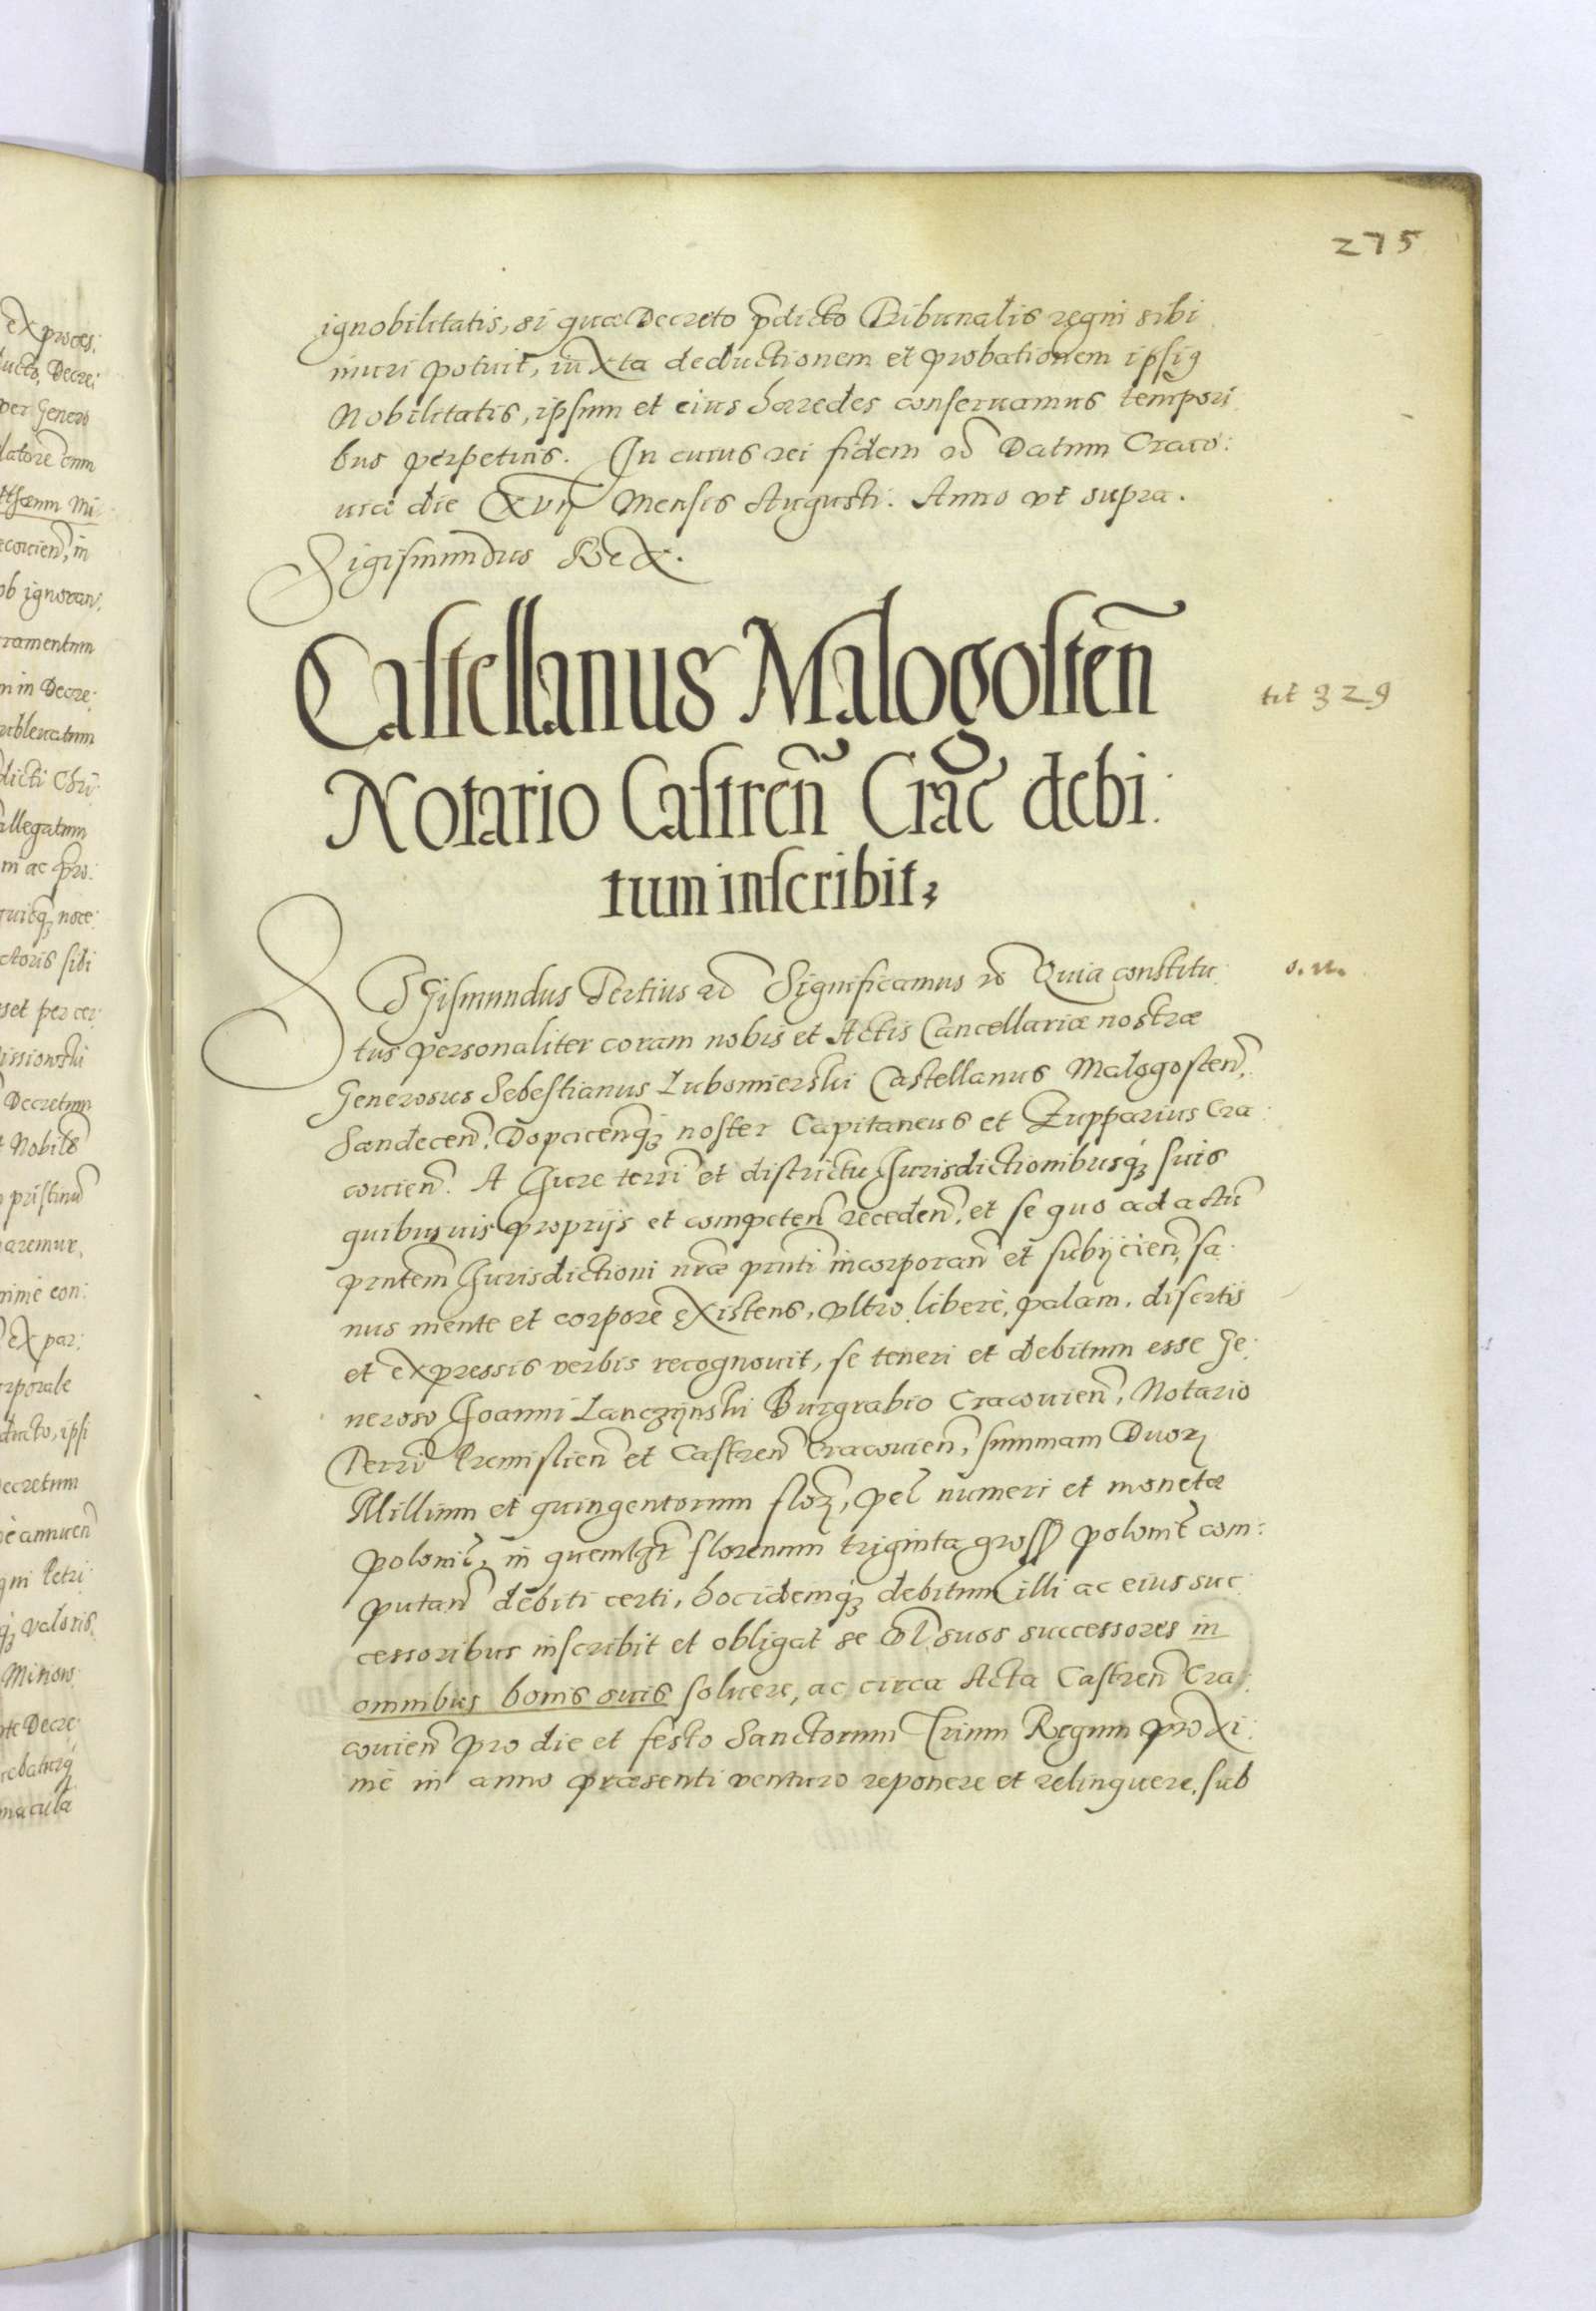 275
ignobilitatis, si qua Decreto p̄dicto Tribunalis regni sibi
inuri potuit, iuxta deductionem et probationem ipsiq
Nobilitatis, ipsum et eius hæredes conseruamus tempori
bus perpetuis. In cuius rei fidem Datum Craco:
uiæ die XVII Mensis Augusti. Anno vt supra.
Sigismundus Rex.
Castellanus Malogosten̄
tit 329
Notario Castren̄ Crac̄ debi:
tum inscribit,
SIgismundus Tertius Significamus Quia constitu:
s. n.
tus personaliter coram nobis et Actis Cancellariæ nostræ
Generosus Sebestianus Lubomierski Castellanus Malogosten̄,
Sandecen̄, Dopcicenq́ noster Capitaneus et Zupparius Cra:
couien̄. A Jure terrī et districtu Jurisdictionibusq́ suis
quibusuis proprijs et competen̄ receden̄, et se quo ad actū
prntem̄ Jurisdictioni nr̄æ prnti incorporan̄ et subijcien̄, sa:
nus mente et corpore existens, vltro, liberè, palam, disertis
et expressis verbis recognouit, se teneri et debitum esse Ge:
neroso Joanni Lanczÿnski Burgrabio Cracouien̄, Notario
Terrī Premislien̄ et Castren̄ Cracouien̄, summam Duorꝝ
Millium et quingentorum florꝝ, pec̄ numeri et monetæ
polonic̄, in quemlꝫt florenum triginta gross polonic̄ com:
putan̄ debiti certi, hocidemq́ debitum illi ac eius suc:
cessoribus inscribit et obligat se et suos successores in
omnibus bonis suis soluere, ac circa Acta Castren̄ Cra:
couien̄ pro die et festo Sanctorum Trium Regum proxi:
mè in anno præsenti venturo reponere et relinquere, sub